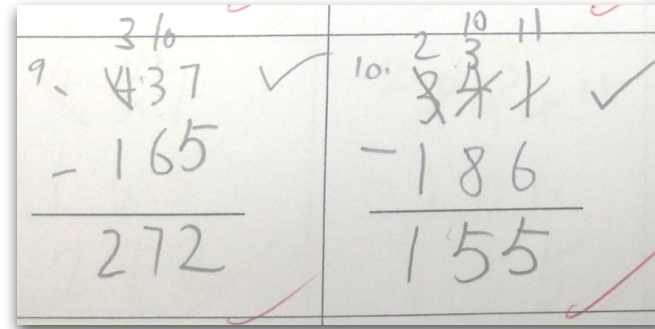 3 10
9. 437
- 165
272
10
2 3 11
10. 341
- 186
155